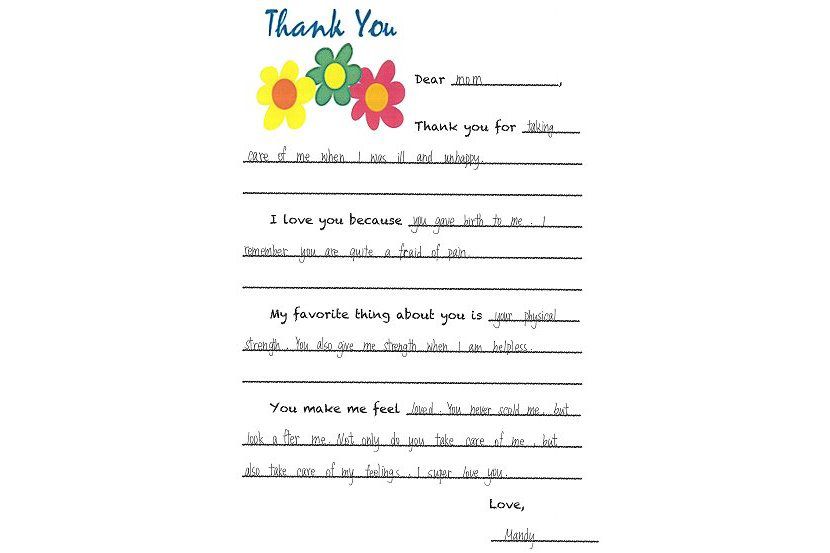 Thank You
Dear mom,
Thank you for taking
care of me when I was ill and unhappy.
I love you because you gave birth to me. I
remember you are quite a fraid of pain.
My favorite thing about you is your physical
strength. You also give me strength when I am helpless.
You make me feel loved. You never scold me, but
look a fter me. Not only do you take care of me, but
also take care of my feelings. I super love you.
Love,
Mandy